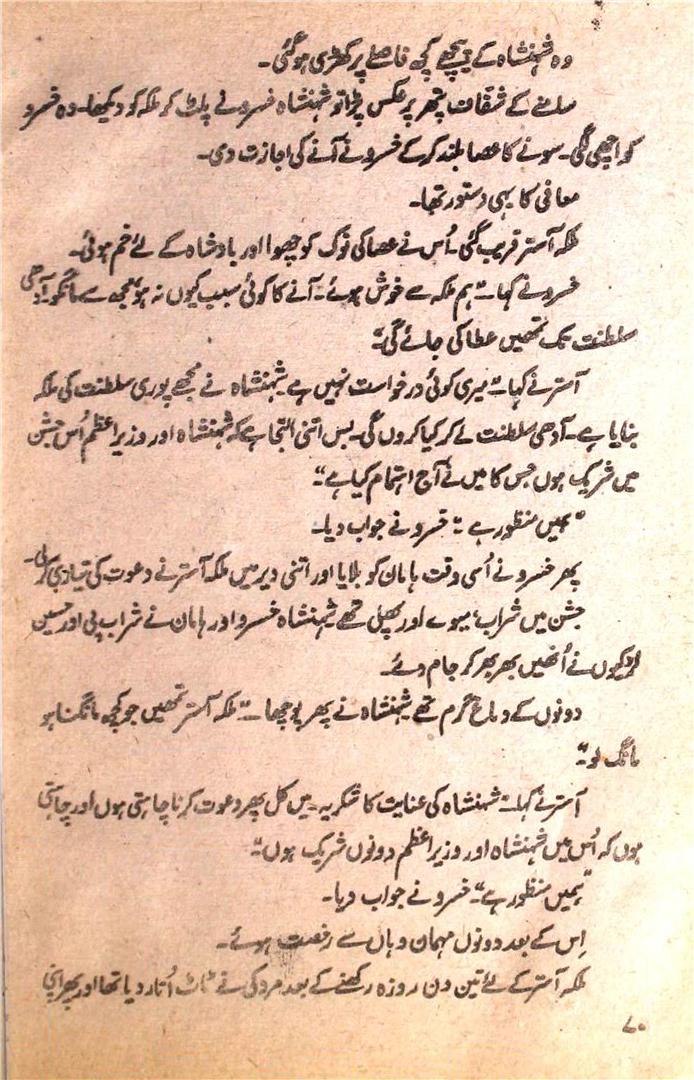 وہ شہنشاہ کے پیچھے کچھ فاصلے پر کھڑی ہوگئی۔
سامنے کے شفّاف پتھر پر عکس پڑا تو شہنشاہ خسرو نے پلٹ کر ملکہ کو دیکھا۔ وہ خسرو
کو اچھی لگی۔ سونے کا عصا بلند کرکے خسرو نے آنے کی اجازت دی۔
معافی کا یہی دستور تھا۔
ملکہ آستر قریب گئی۔ اُس نے عصا کی نوک کو چھوا اور بادشاہ کے لئے خم ہوئی۔
خسرو نے کہا۔ "ہم ملکہ سے خوش ہوئے۔ آنے کا کوئی سبب کیوں نہ ہو، مجھ سے مانگو۔ آدھی
سلطنت تک تمھیں عطا کی جائے گی۔"
آستر نے کہا۔ "میری کوئی درخواست نہیں ہے شہنشاہ نے مجھے پوری سلطنت کی ملکہ
بنایا ہے۔ آدھی سلطنت لے کر کیا کروں گی۔ بس اتنی التجا ہے کہ شہنشاہ اور وزیراعظم اُس جشن
میں شریک ہوں جس کا میں نے آج اہتمام کیا ہے۔"
"ہمیں منظور ہے۔" خسرو نے جواب دیا۔
پھر خسرو نے اُسی وقت ہامان کو بلایا اور اتنی دیر میں ملکہ آستر نے دعوت کی تیاری کرلی۔
جشن میں شراب، میوے اور پھل تھے شہنشاہ خسرو اور ہامان نے شراب پی اور حسین
لڑکیوں نے اُنھیں بھر بھر کر جام دئے۔
دونوں کے دماغ گرم تھے شہنشاہ نے پھر پوچھا۔ "ملکہ آستر تمھیں جو کچھ مانگنا ہو
مانگ لو۔"
آستر نے کہا۔ "شہنشاہ کی عنایت کا شکریہ۔ میں کل پھر دعوت کرنا چاہتی ہوں اور چاہتی
ہوں کہ اُس میں شہنشاہ اور وزیراعظم دونوں شریک ہوں۔"
"ہمیں منظور ہے۔" خسرو نے جواب دیا۔
اِس کے بعد دونوں مہمان وہاں سے رخصت ہوئے۔
ملکہ آستر کے لئے تین دن روزہ رکھنے کے بعد مردکی نے ٹاٹ اُتار دیا تھا اور پھر اپنی
۷۰